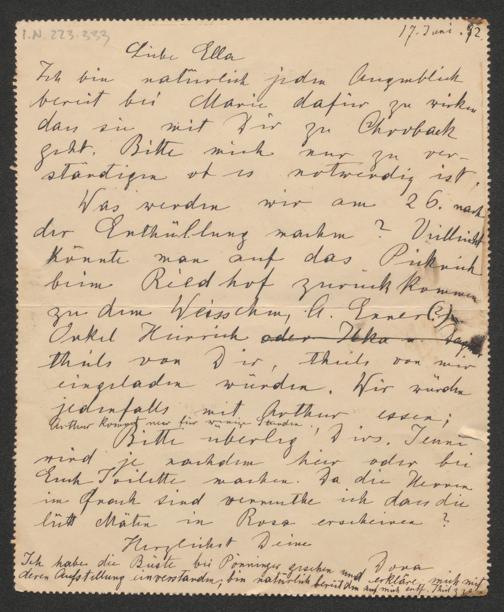 I.N. 223.333
17. Juni. 92
Liebe Ella
Ich bin natürlich jeden Augenblick
bereit bei Marie dafür zu wirken
dass sie mit Dir zu Chroback
geht. Bitte mich nur zu ver-
ständigen ob es notwendig ist.
Was werden wir am 26. nach
der Enthüllung machen? Vielleicht
könnte man auf das Picknick
beim Riedhof zurückkommen
zu dem Weisschen, G. Exner (2)
Onkel Heinrich oder Ilka
theils von Dir, theils von mir
eingeladen würden. Wir würden
jedenfalls mit Arthur essen;
Arthur kommt nur für wenige Stunden!
Bitte überleg Dirs. Jenni
wird je nachdem hier oder bei
Euch Toilette machen. Da die Herren
im Frack sind vermuthe ich dass die
lütt Mäten in Rosa erscheinen?
Herzlichst Deine
Dora
Ich habe die Büste bei Pönninger gesehen und erkläre mich mit
deren Aufstellung einverstanden, bin natürlich bereit den auf mich entf. Theil z. zahlen